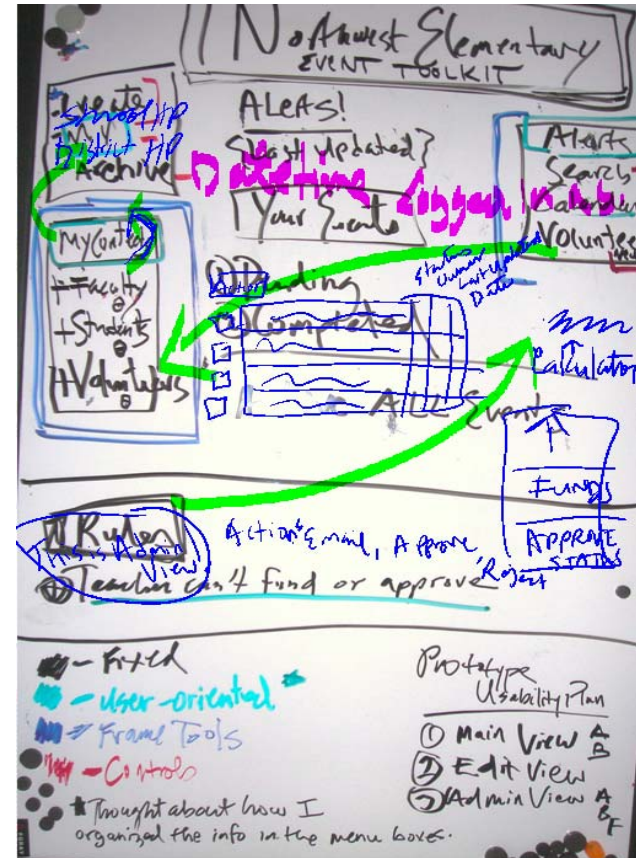 Northwest Elementary
EVENT TOOLKIT
Create
School HP
My
District HP
Archive
ALeAs!
{Last Updated}
Datetime Logged in
Your Events
Alerts
Search
Calendar
Volunteer
My Contacts
+Faculty
+Students
+Volunteers
Pending
Action
Completed
Status
Owner
Last Updated
Date
ALL Event
Calculator
Funds
APPROVE
STATUS
This is Admin
View
Action: Email, Approve,
Reject
Teacher can't fund or approve
- Fixed
- user-oriented
Frame Tools
- Controls
* Thought about how I
organized the info in the menu boxes.
Prototype
Usability Plan
① Main View A
B
② Edit View
③ Admin View A
B
F